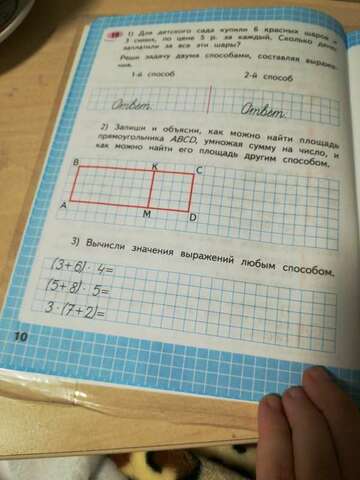 18 1) Для детского сада купили 6 красных шаров и
3 синих, по цене 5 р. за каждый. Сколько денег
заплатили за все эти шары?
Реши задачу двумя способами, составляя выраже-
ния.
1-й способ 2-й способ
Ответ Ответ.
2) Запиши и объясни, как можно найти площадь
прямоугольника ABCD, умножая сумму на число, и
как можно найти его площадь другим способом.
B K C
A M D
3) Вычисли значения выражений любым способом.
(3+6)· 4=
(5+8)· 5=
3·(7+2)=
10